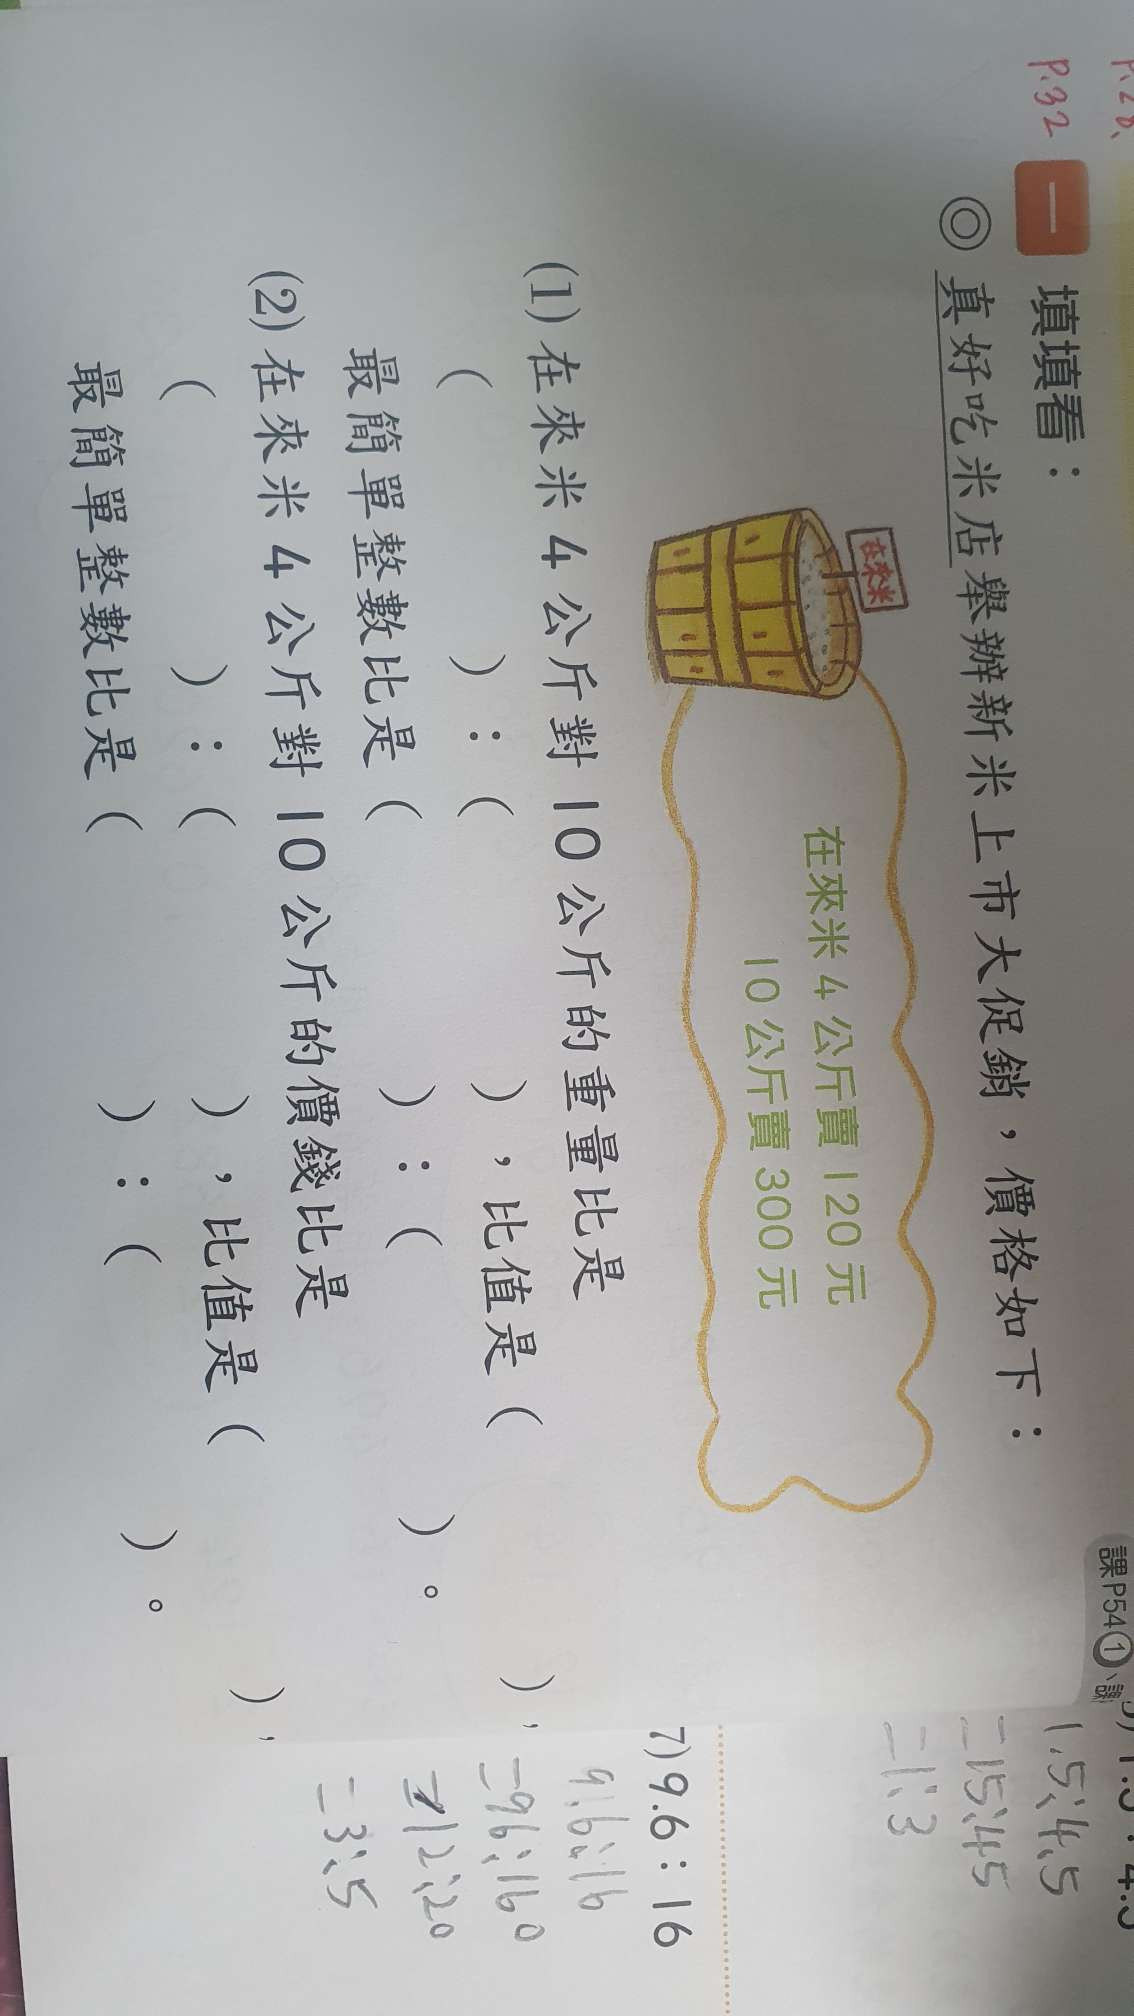 P.28、
P.32
課P54①、課
一 填填看：
◎ 真好吃米店舉辦新米上市大促銷，價格如下：
在來米
在來米 4 公斤賣 120 元
10 公斤賣 300 元
(1) 在來米 4 公斤對 10 公斤的重量比是
(　　) : (　　)，比值是(　　)，
最簡單整數比是(　　) : (　　)。
(2) 在來米 4 公斤對 10 公斤的價錢比是
(　　) : (　　)，比值是(　　)，
最簡單整數比是(　　) : (　　)。
1.5:4.5
=15:45
=1:3
7) 9.6 : 16
9.6:16
=96:160
=12:20
=3:5